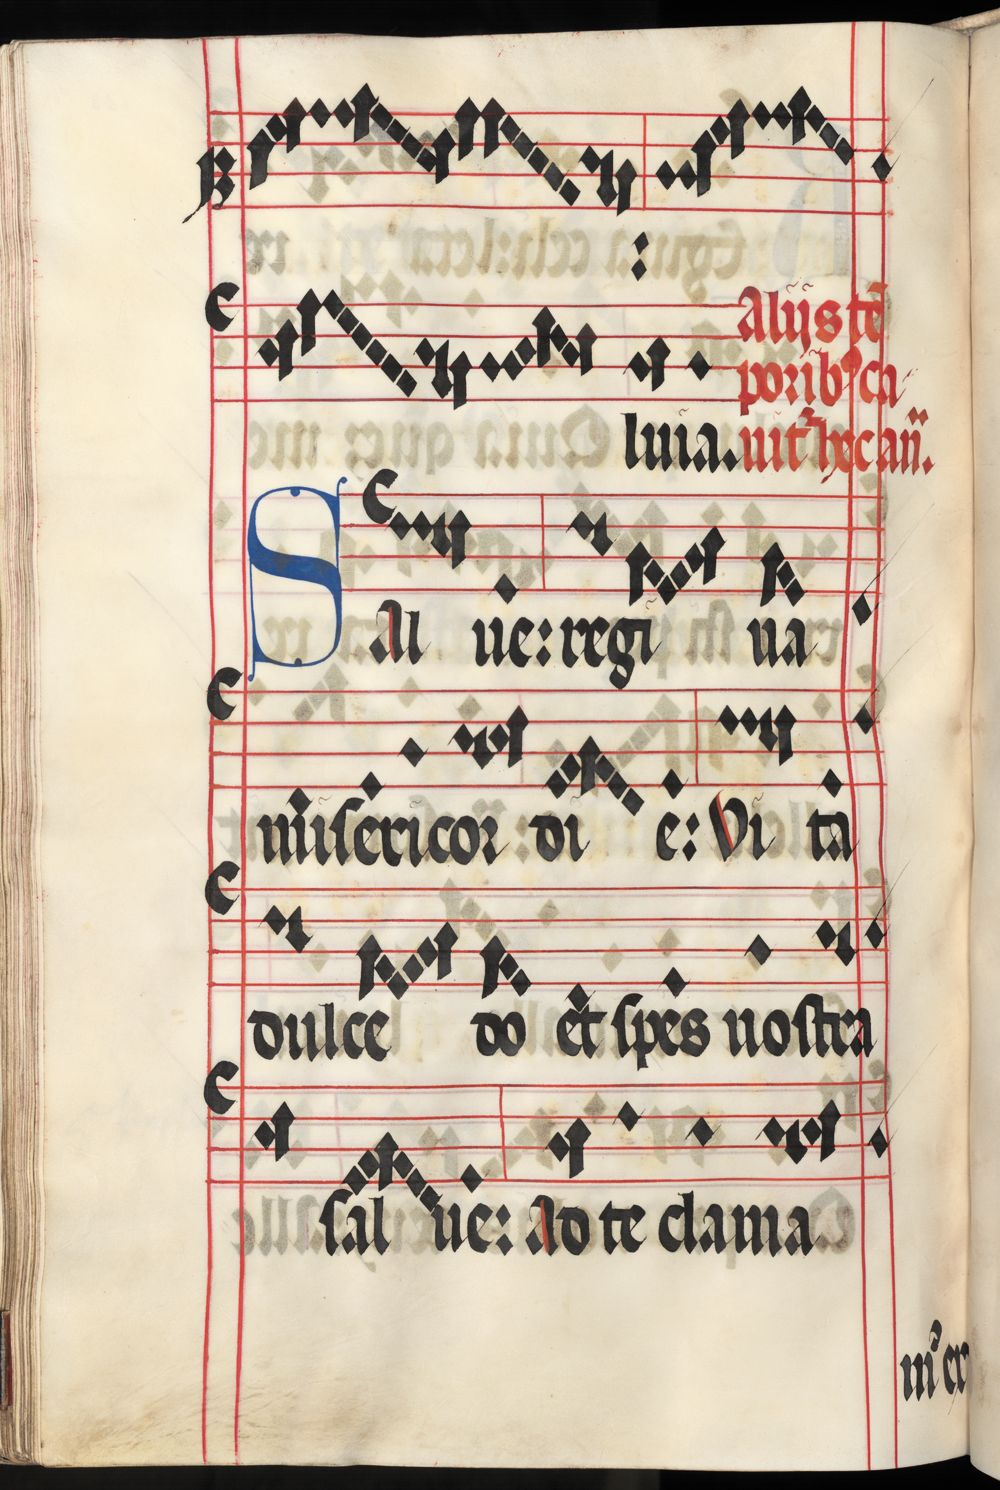 :
Alijs tē
poribꝰ ca
luia. nit᷑ hec an̄.
Sal ue: regi na
misericor di e: Vi ta
dulce do et spes nostra
sal ue: Ad te clama